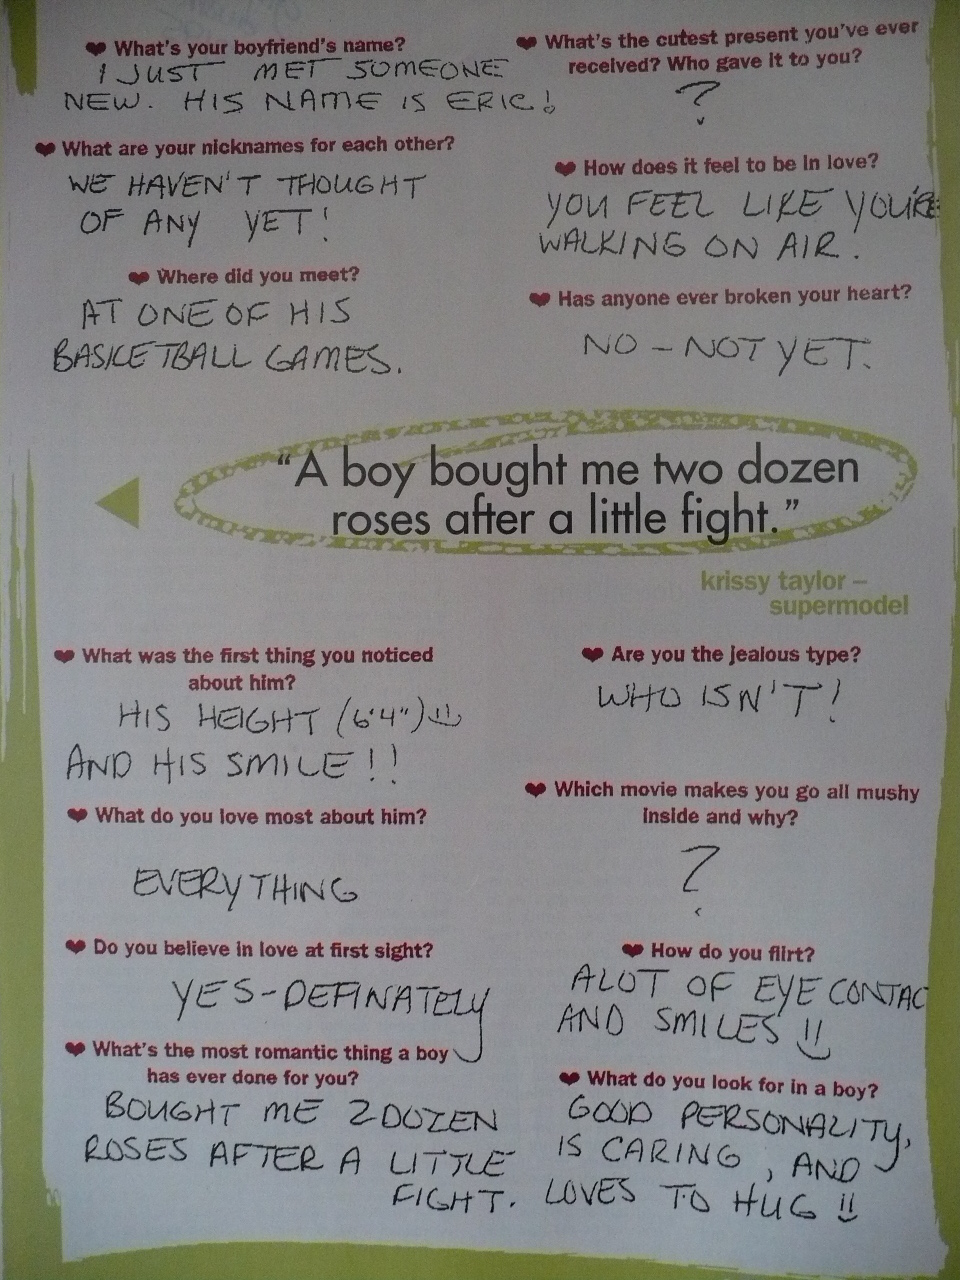 What's your boyfriend's name?
I JUST MET SOMEONE
NEW. HIS NAME IS ERIC!
What are your nicknames for each other?
WE HAVEN'T THOUGHT
OF ANY YET!
Where did you meet?
AT ONE OF HIS
BASKETBALL GAMES.
What's the cutest present you've ever
received? Who gave it to you?
?
How does it feel to be in love?
YOU FEEL LIKE YOU'RE
WALKING ON AIR.
Has anyone ever broken your heart?
NO - NOT YET.
"A boy bought me two dozen
roses after a little fight."
krissy taylor –
supermodel
What was the first thing you noticed
about him?
HIS HEIGHT (6'4")
AND HIS SMILE!!
What do you love most about him?
EVERYTHING
Do you believe in love at first sight?
YES-DEFINATELY
What's the most romantic thing a boy
has ever done for you?
BOUGHT ME 2 DOZEN
ROSES AFTER A LITTLE
FIGHT.
Are you the jealous type?
WHO ISN'T!
Which movie makes you go all mushy
inside and why?
?
How do you flirt?
ALOT OF EYE CONTAC
AND SMILES
What do you look for in a boy?
GOOD PERSONALITY,
IS CARING, AND
LOVES TO HUG